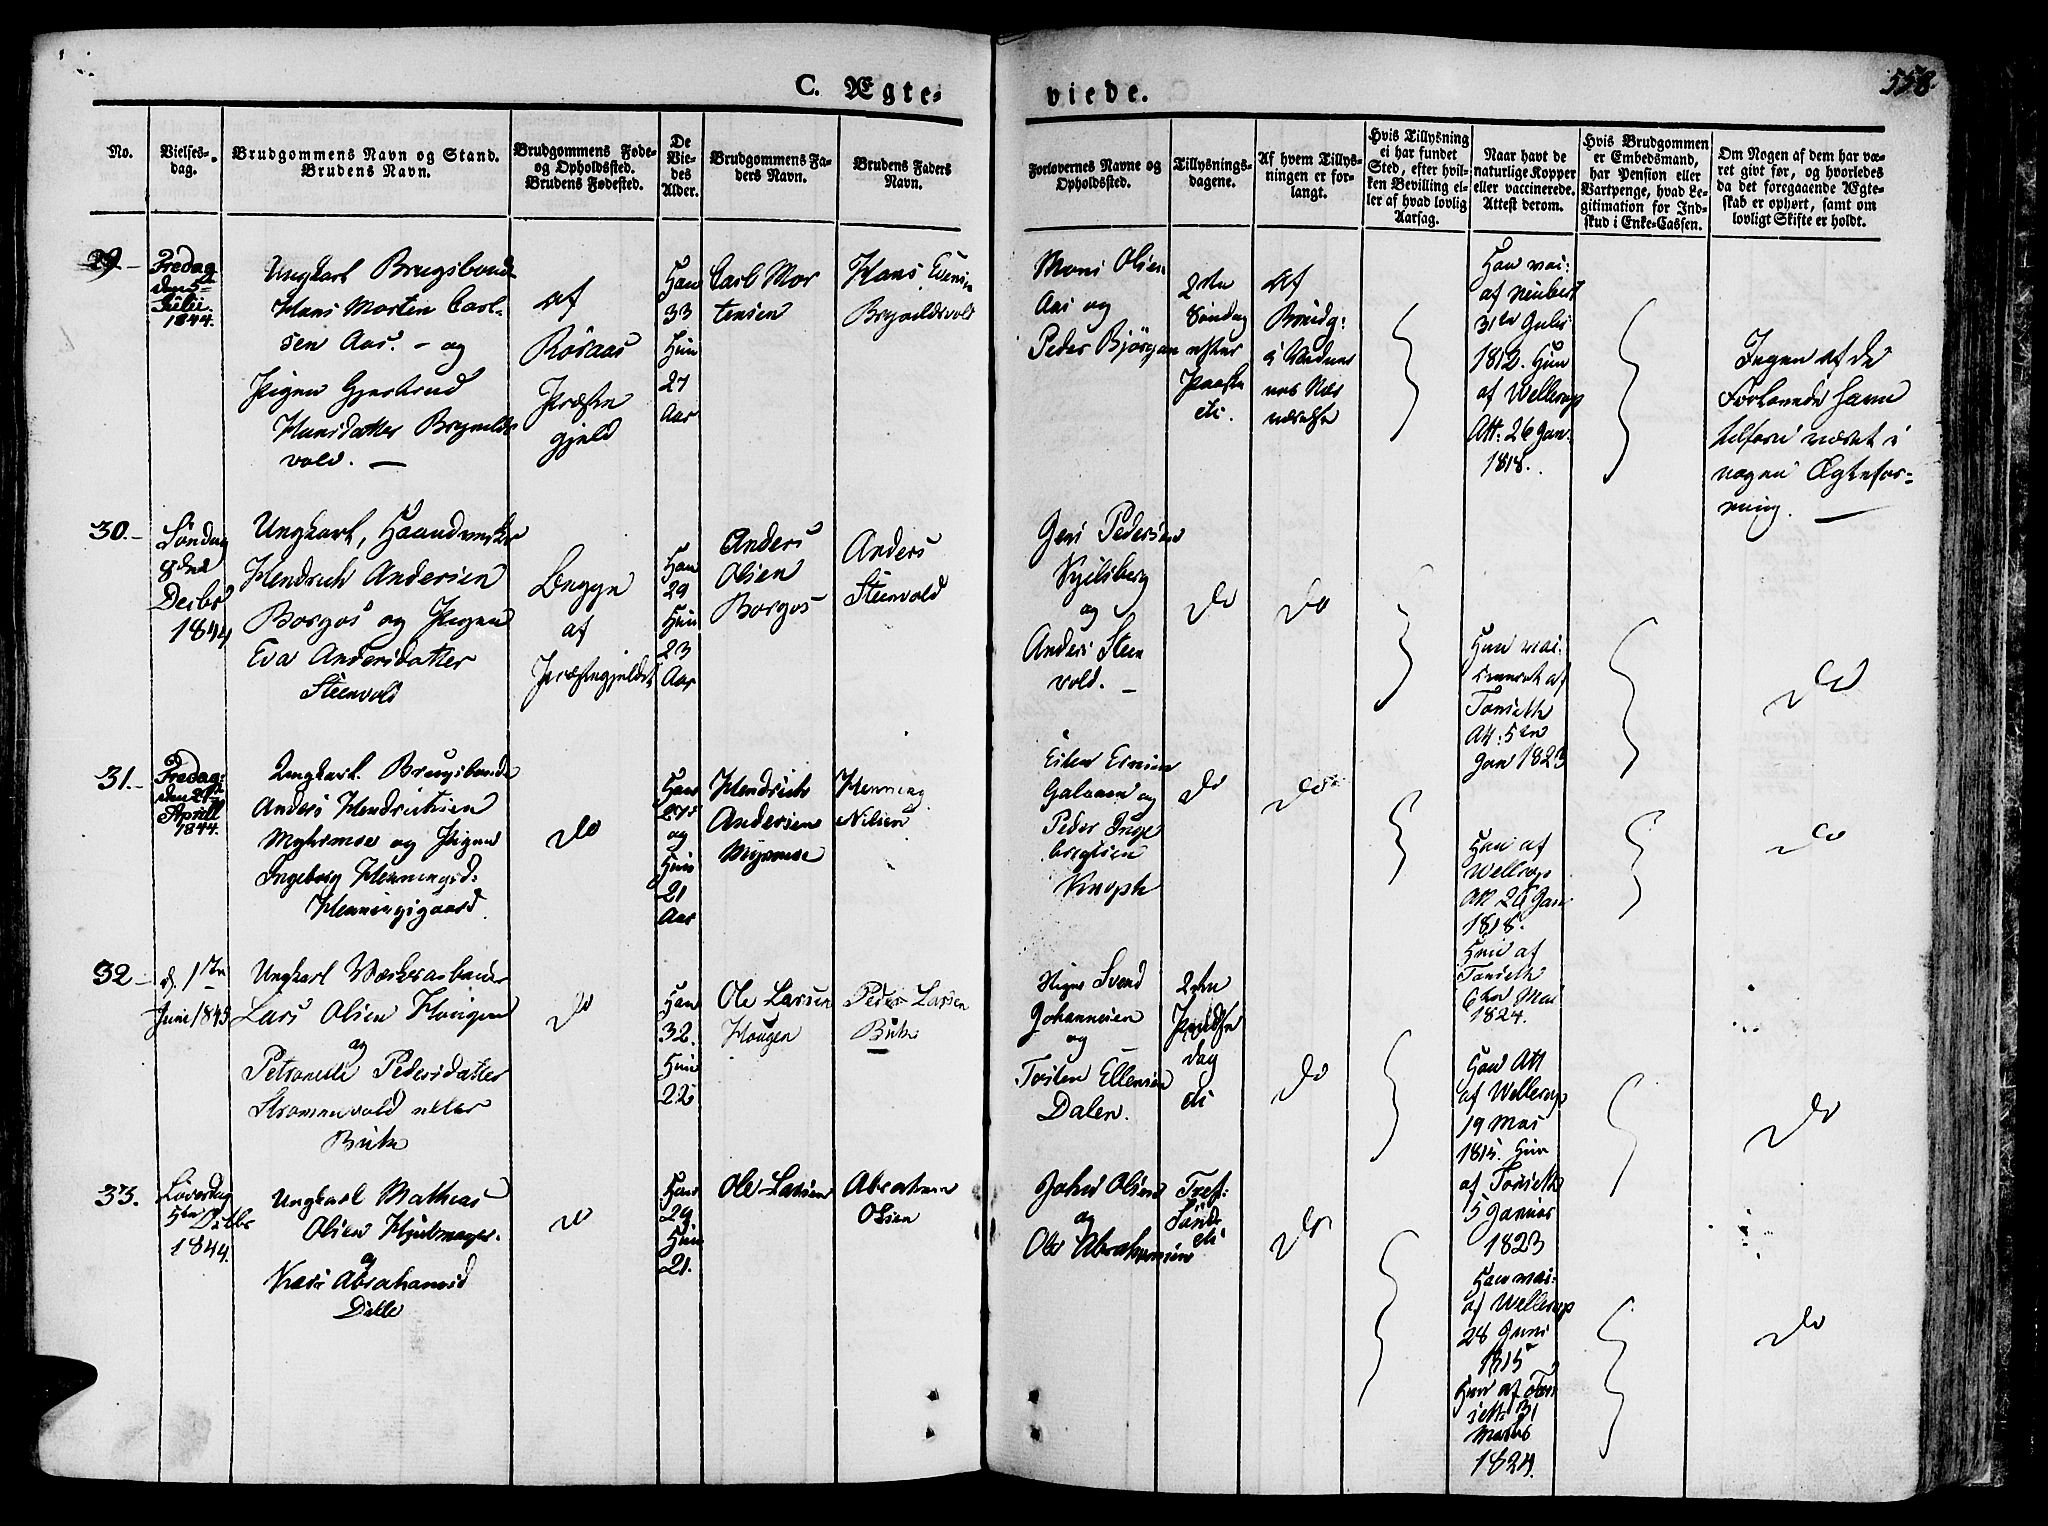 C. Ægte-
viede.
558.
No.
Vielses-
dag.
Brudgommens Navn og Stand.
Brudens Navn.
Brudgommens Føde-
og Opholdssted.
Brudens Fødested.
De
Vie-
des
Alder.
Brudgommens Fa-
ders Navn.
Brudens Faders
Navn.
Forlovernes Navne og
Opholdssted.
Tillysnings-
dagene.
Af hvem Tillys-
ningen er for-
langt.
Hvis Tillysning
ei har fundet
Sted, efter hvil-
ken Bevilling el-
ler af hvad lovlig
Aarsag.
Naar havt de
naturlige Kopper
eller vaccinerede.
Attest derom.
Hvis Brudgommen
er Embedsmand,
har Pension eller
Vartpenge, hvad Le-
gitimation for Ind-
skud i Enke-Cassen.
Om Nogen af dem har væ-
ret givt før, og hvorledes
da det foregaaende Ægte-
skab er ophørt, samt om
lovligt Skifte er holdt.
29.-
Fredag
den 5te
Julii
1844.
Ungkarl Brugsbonde
Hans Morten Carl-
sen Aas. - og
Pigen Gjertrud
Hansdatter Brynilds
vold. -
af
Røraas
Præste
gjeld
Han
33
Hun
27
Aar
Carl Mor
tensen
Hans Evensen
Brynildsvold
Mons Olsen
Aas og
Peder Bjørgen
2den
Søndag
efter
Paaske
etc.
Af
Brudg:
Han vac:
af Neubert
31te Julii
1812. Hun
af Wellerop
Att: 26 Jan:
1818.
Ingen af de
Forlovede have
tilforn været i
nogen Ægtefor-
ening. -
30.-
Søndag
8de
Decbr
1844
Ungkarl, Haandverker
Hendrich Andersen
Borgos og Pigen
Eva Andersdatter
Steenvold
Begge
af
Præstegjeldet
Han
29
Hun
23
Aar
Anders
Olsen
Borgos
Anders
Steenvold
Jens Pedersen
og
Anders Steen
vold. -
Do
Do
Tønseth
Att: 5te
Jan 1823
Do
31.-
Fredag
1844.
Ungkarl Brugsbonde
Anders Hendrichsen
og Pigen
Ingeborg Henningsd:
Henningsgaard.
Do
Han
27
og
Hun
21
Aar
Hendrich
Andersen
Henning
Nilsen
Galaaen og
Peder Inge
brigtsen
Knoph
Do
Do
Han af
Wellerop
Att 26 Jan
1818.
Hun af
Tønseth
6te Mai
1824.
Do
32-
d. 1ste
Juni 1845
Ungkarl
Lars Olsen Hougen
og
Petronelle Pedersdatter
Strømmevold eller
Do
Han
32.
Hun
22
Ole Larsen
Hougen
Peder Larsen
Svend
Johannesen
og
Torsten Ellensen
Dalen.
2den
Pindse
dag
etc
Do
Han Att
af Wellerop
19 Mai
1815. Hun
af Tønseth
5 Januar
1823
Do
33.
Løverdag
1844.
Ungkarl Mathias
Olsen Hjulmager.
og
Kari Abrahamsd
Do
Han
29
Hun
21.
Ole Larsen
Abraham
Olsen
John Olsen
og
Ole Abrahamsen
Tref:
Sønd
etc
Do
Han vac.
af Wellerop
28 Juni
1815
Hun af Tøn
seth 31
Marts
1824.
Do